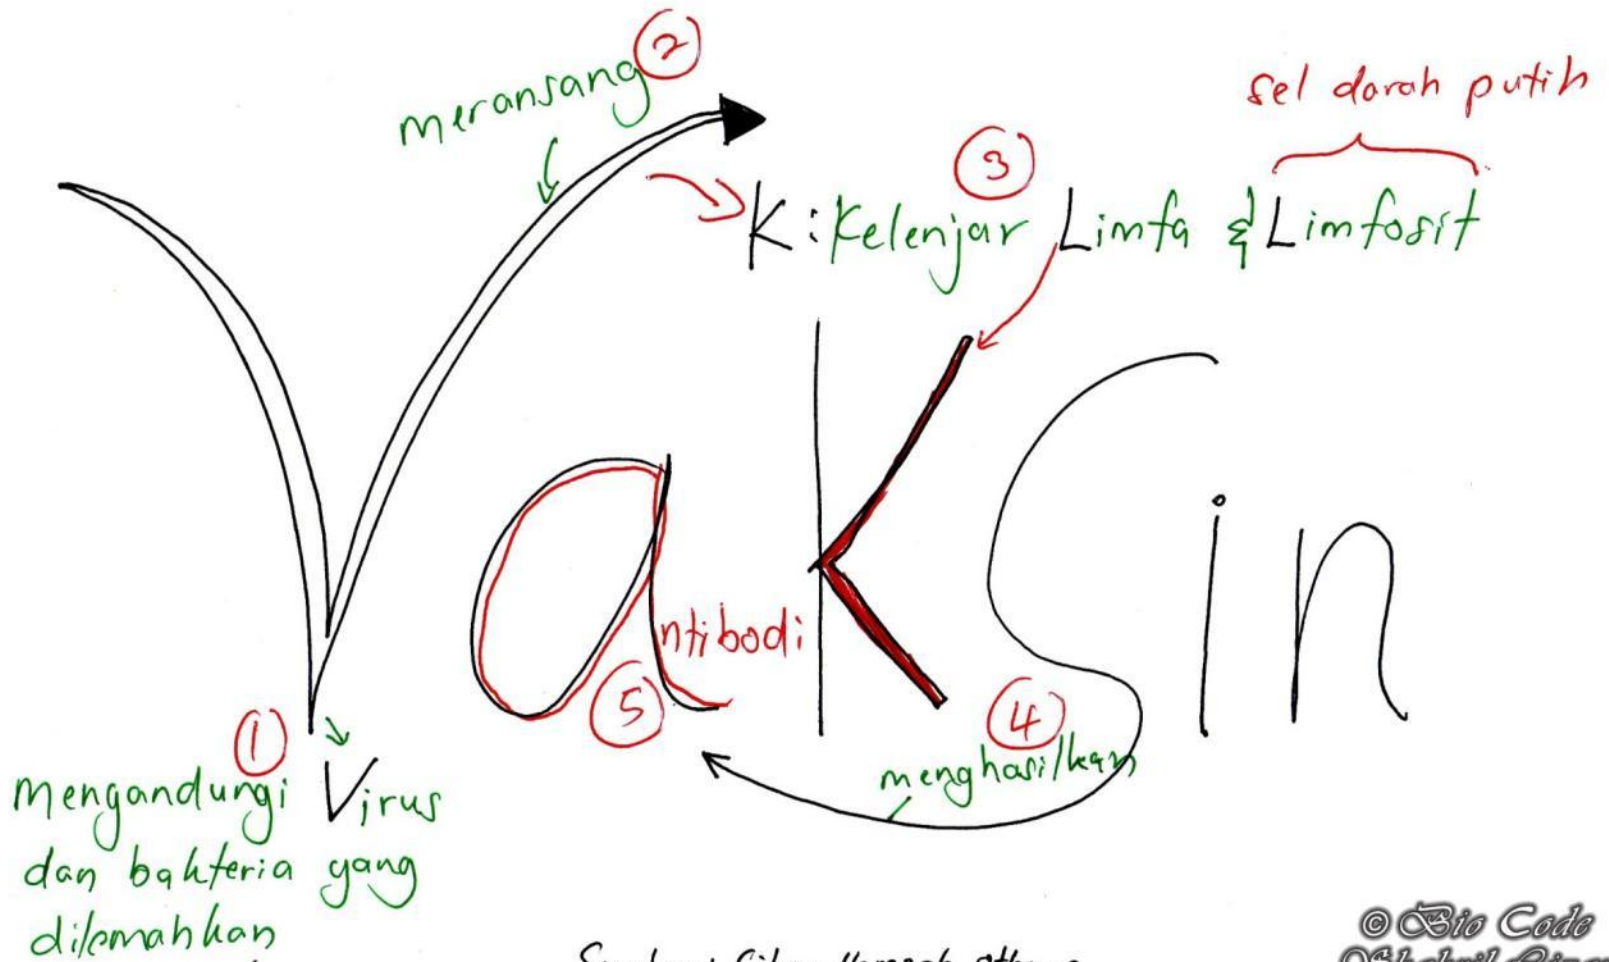 2
meransang
sel darah putih
3
K : Kelenjar Limfa & Limfosit
Vaksin
antibodi
5
4
menghasilkan
1
Mengandungi Virus
dan bakteria yang
dilemahkan
© Bio Code